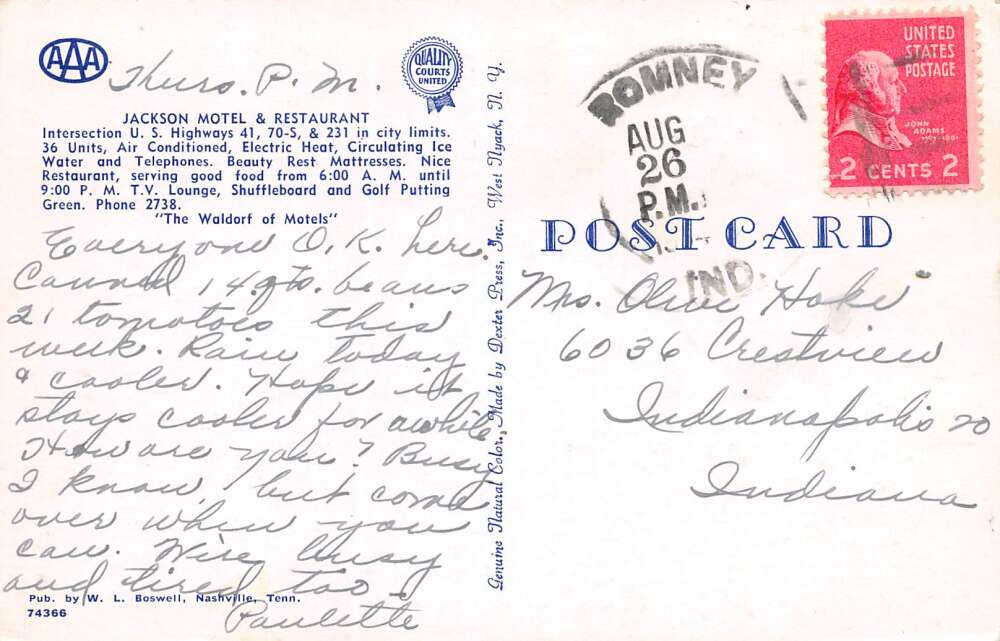 AAA
Thurs. P. M.
QUALITY
COURTS
UNITED
JACKSON MOTEL & RESTAURANT
Intersection U. S. Highways 41, 70-S, & 231 in city limits.
36 Units, Air Conditioned, Electric Heat, Circulating Ice
Water and Telephones. Beauty Rest Mattresses. Nice
Restaurant, serving good food from 6:00 A. M. until
9:00 P. M. T.V. Lounge, Shuffleboard and Golf Putting
Green. Phone 2738.
"The Waldorf of Motels"
Everyone O.K. here.
Canned 14 qts. beans
21 tomatoes this
week. Rain today
& cooler. Hope it
stays cooler for awhile.
How are you? Busy
I know, but come
over when you
can. We're busy
and tired too.
Paulette
Pub. by W. L. Boswell, Nashville, Tenn.
74366
Genuine Natural Color, Made by Dexter Press, Inc., West Nyack, N. Y.
ROMNEY
AUG
26
P.M.
IND.
UNITED
STATES
POSTAGE
JOHN
ADAMS
2 CENTS 2
POST CARD
Mrs. Olive Hoke
6036 Crestview
Indianapolis 20
Indiana